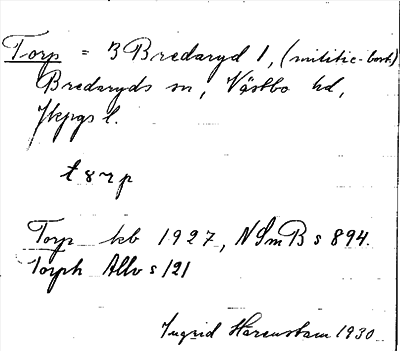 Torp = 3 Bredaryd 1, (militie-bost)
Bredaryds sn, Västbo hd,
Jkpgs l.
tɜrp
Torp kb 1927, NSmB s 894.
Torph Allv s 121
Ingrid Harenstam 1930